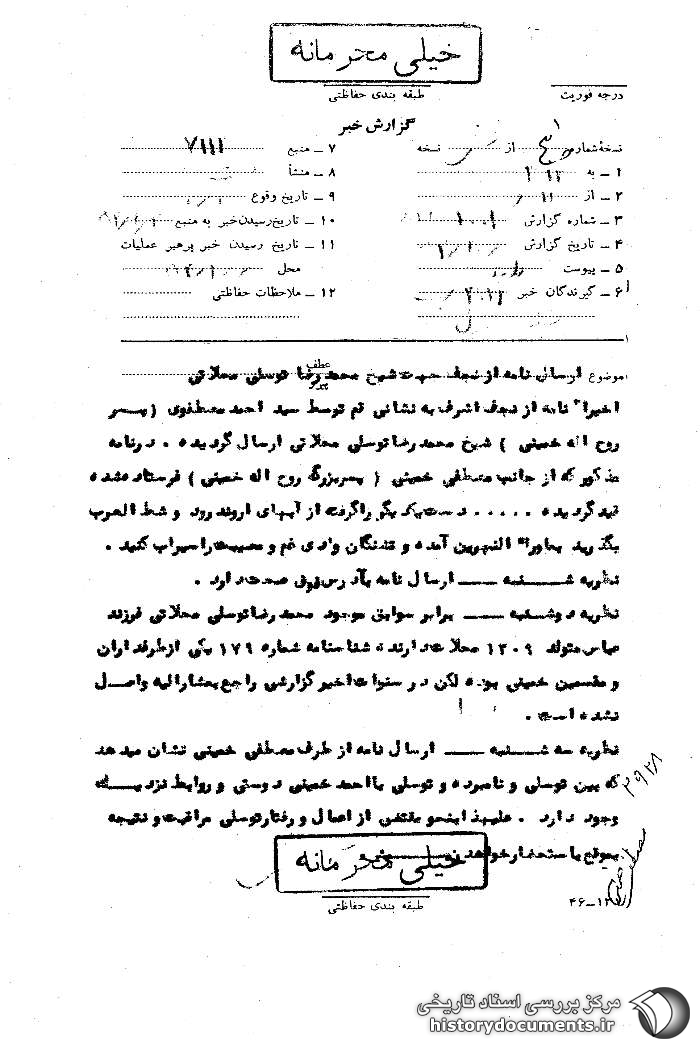 خیلی محرمانه
طبقه بندی حفاظتی
درجه فوریت
گزارش خبر
نسخهٔ شماره از نسخه
۱ ـ به
۲ ـ از
۳ ـ شماره گزارش
۴ ـ تاریخ گزارش
۵ ـ پیوست
۶ ـ گیرندگان خبر
۷ ـ منبع ۷۱۱۱
۸ ـ منشأ
۹ ـ تاریخ وقوع
۱۰ ـ تاریخ رسیدن خبر به منبع
۱۱ ـ تاریخ رسیدن خبر برهبر عملیات
محل
۱۲ ـ ملاحظات حفاظتی
عطف
پیرو
موضوع ارسال نامه از نجف جهت شیخ محمد رضا توسلی محلاتی
اخیرا" نامه از نجف اشرف به نشانی قم توسط سید احمد مصطفوی ( پسر
روح اله خمینی ) شیخ محمد رضا توسلی محلاتی ارسال گردیده . در نامه
مذکور که از جانب مصطفی خمینی ( پسر بزرگ روح اله خمینی ) فرستاده شده
قید گردیده ..... دست یکدیگر را گرفته از آبهای اروند رود و شط العرب
بگذرید بماوراء النهرین آمده و تشنگان وادی غم و مصیبت را سیراب کنید .
نظریه شنبه ـــ ارسال نامه بآدرس فوق صحت دارد .
نظریه دوشنبه ـــ برابر سوابق موجود محمد رضا توسلی محلاتی فرزند
عباس متولد ۱۳۰۹ محلات دارنده شناسنامه شماره ۱۷۹ یکی از طرفداران
و مقسمین خمینی بوده لکن در سنوات اخیر گزارشی راجع بمشارالیه واصل
نشده است .
نظریه سه شنبه ـــ ارسال نامه از طرف مصطفی خمینی نشان میدهد
که بین توسلی و نامبرده و توسلی با احمد خمینی دوستی و روابط نزدیک
وجود دارد . علیهذا بنحو مقتضی از اعمال و رفتار توسلی مراقبت و نتیجه
بموقع باستحضار خواهد رسید
خیلی محرمانه
طبقه بندی حفاظتی
۱۲ـ۴۶
مرکز بررسی اسناد تاریخی
historydocuments.ir